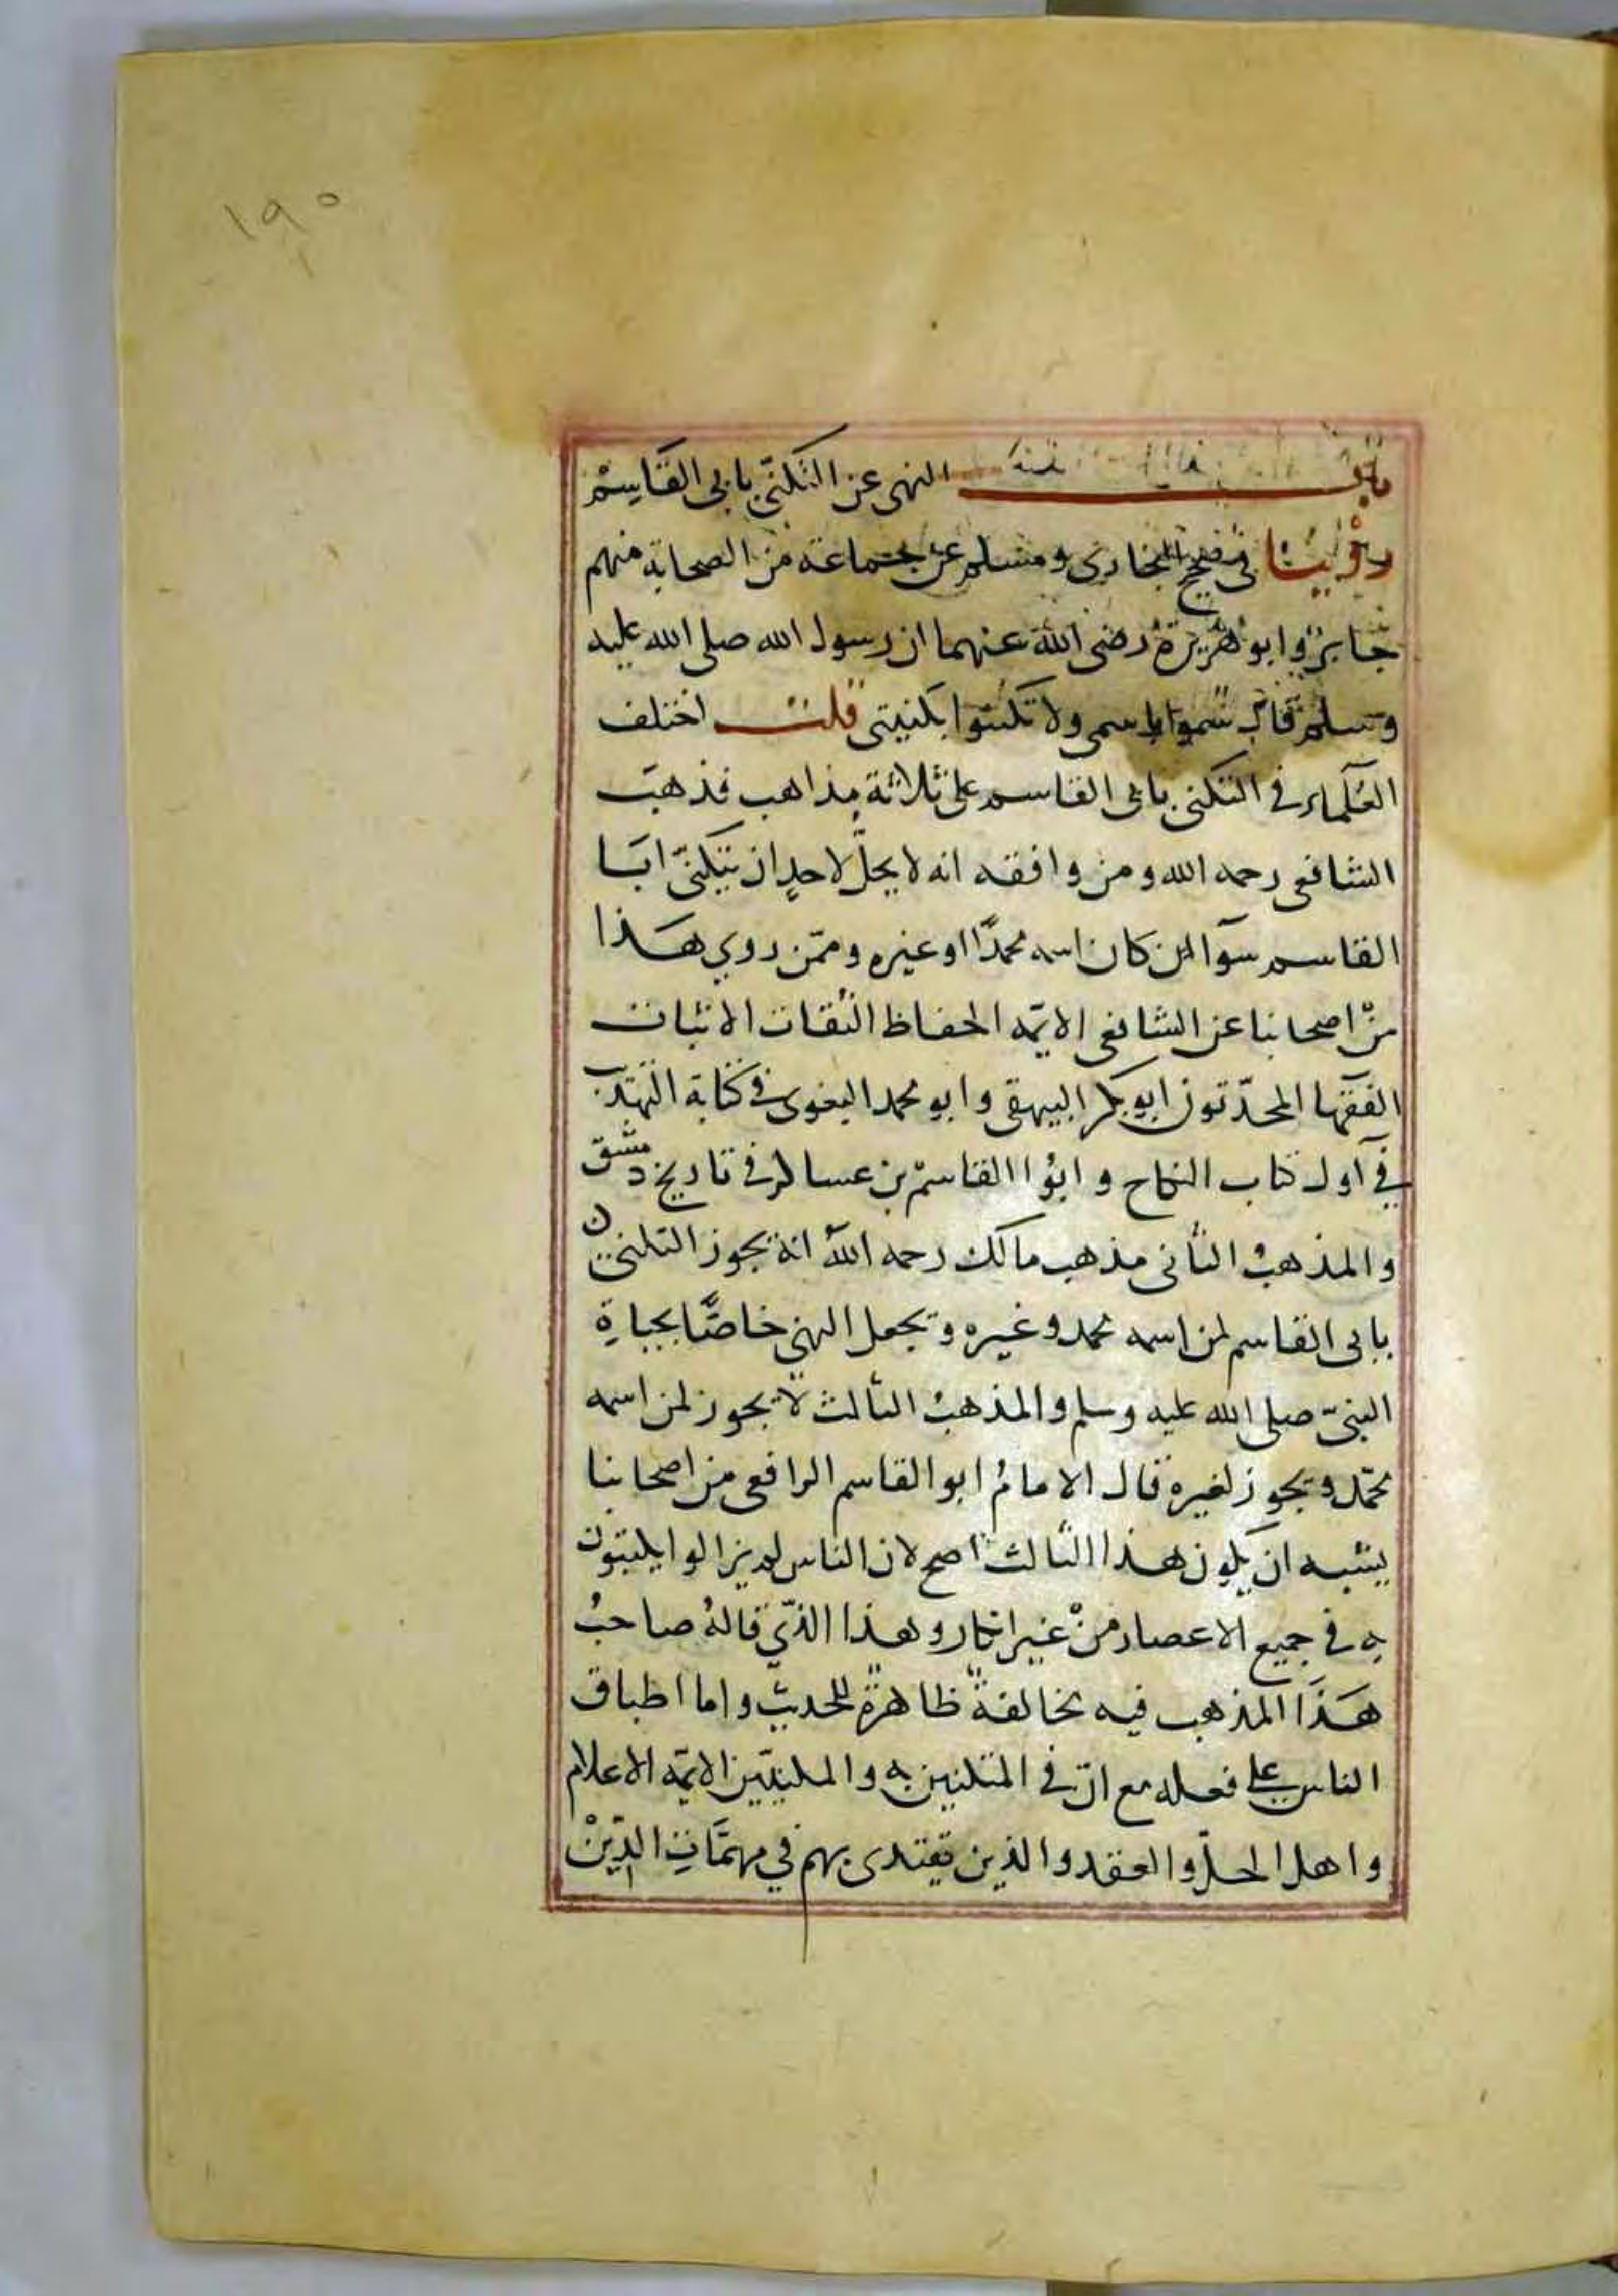 ١٩٠
باب النهى عن التكنّى بابى القاسم
روينا فى صحيح البخارى ومسلم عن جماعة من الصحابة منهم
جابر وابو هريرة رضى الله عنهما ان رسول الله صلى الله عليه
وسلم قال سموا باسمى ولا تكنوا بكنيتى قلت اختلف
العلماء فى التكنى بابى القاسم على ثلاثة مذاهب فذهب
الشافعى رحمه الله ومن وافقه انه لا يحلّ لاحدٍ ان يتكنّى ابا
القاسم سوآ كان اسمه محمدًا او غيره وممّن روي هذا
منْ اصحابنا عن الشافعى الايمّه الحفاظ الثقات الاثبات
الفقها المحدّثون ابو بكر البيهقى وابو محمد البغوى فى كتابه التهذيب
في اول كتاب النكاح وابوا القاسم بن عساكر فى تاريخ دمشق
والمذهبُ الثانى مذهب مالك رحمه الله انه يجوز التكنى
بابى القاسم لمن اسمه محمد وغيره ويجعل النهي خاصًّا بحياةِ
النبىّ صلى الله عليه وسلم والمذهبُ الثالث لا يجوز لمن اسمه
محمّد ويجوز لغيره قال الامامُ ابو القاسم الرافعى من اصحابنا
يشبه ان يكون هذا الثالث اصح لان الناس لم يزالوا يكتنون
به فى جميع الاعصار منْ غير انكار وهذا الذّي قالهُ صاحبُ
هَذَا المذهب فيه مخالفةٌ ظاهرةٌ للحديث واما اطباق
الناس على فعله مع انّ فى المتكنين به والمكنيّين الايمّه الاعلام
واهل الحلّ والعقد والذين يقتدى بهم في مهمَّاتِ الدّينْ